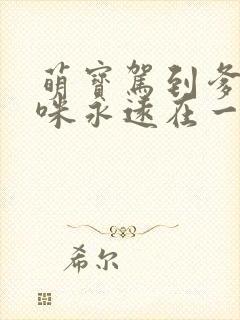 萌寶駕到爹
咪永遠在一
希尔